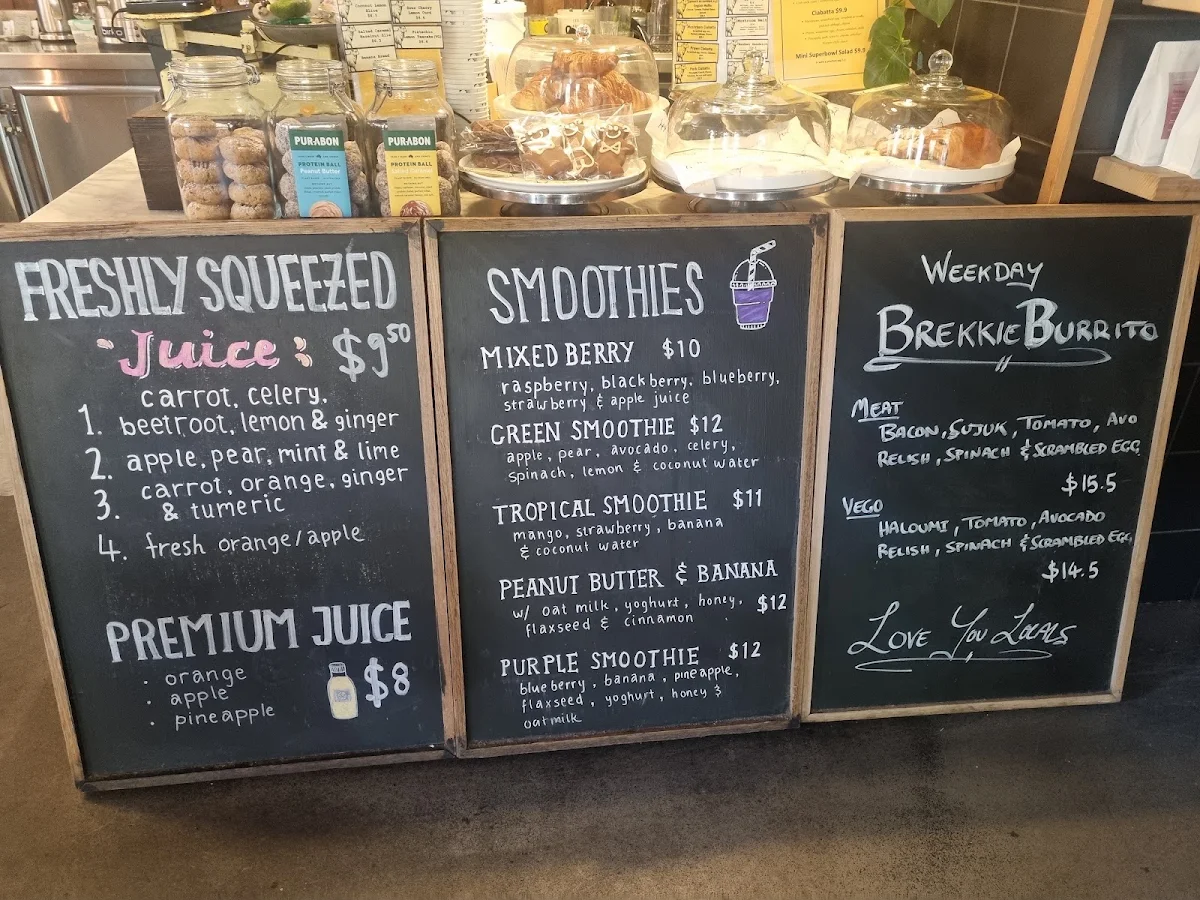 Ciabatta $9.9
Mini Superbowl Salad $9.9
PURABON
PROTEIN BALL
Peanut Butter
PURABON
PROTEIN BALL
FRESHLY SQUEEZED
"Juice: $9.50
carrot, celery,
1. beetroot, lemon & ginger
2. apple, pear, mint & lime
carrot, orange, ginger
3. & tumeric
4. fresh orange/apple
PREMIUM JUICE
• orange
• apple
• pineapple
$8
SMOOTHIES
MIXED BERRY $10
raspberry, blackberry, blueberry,
strawberry & apple juice
GREEN SMOOTHIE $12
apple, pear, avocado, celery,
spinach, lemon & coconut water
TROPICAL SMOOTHIE $11
mango, strawberry, banana
& coconut water
PEANUT BUTTER & BANANA
w/ oat milk, yoghurt, honey, $12
flaxseed & cinnamon
PURPLE SMOOTHIE $12
blueberry, banana, pineapple,
flaxseed, yoghurt, honey &
oatmilk
WEEKDAY
BREKKIE BURRITO
MEAT
BACON, SUJUK, TOMATO, AVO
RELISH, SPINACH & SCRAMBLED EGG
$15.5
VEGO
HALOUMI, TOMATO, AVOCADO
RELISH, SPINACH & SCRAMBLED EGG
$14.5
LOVE YOU LOCALS